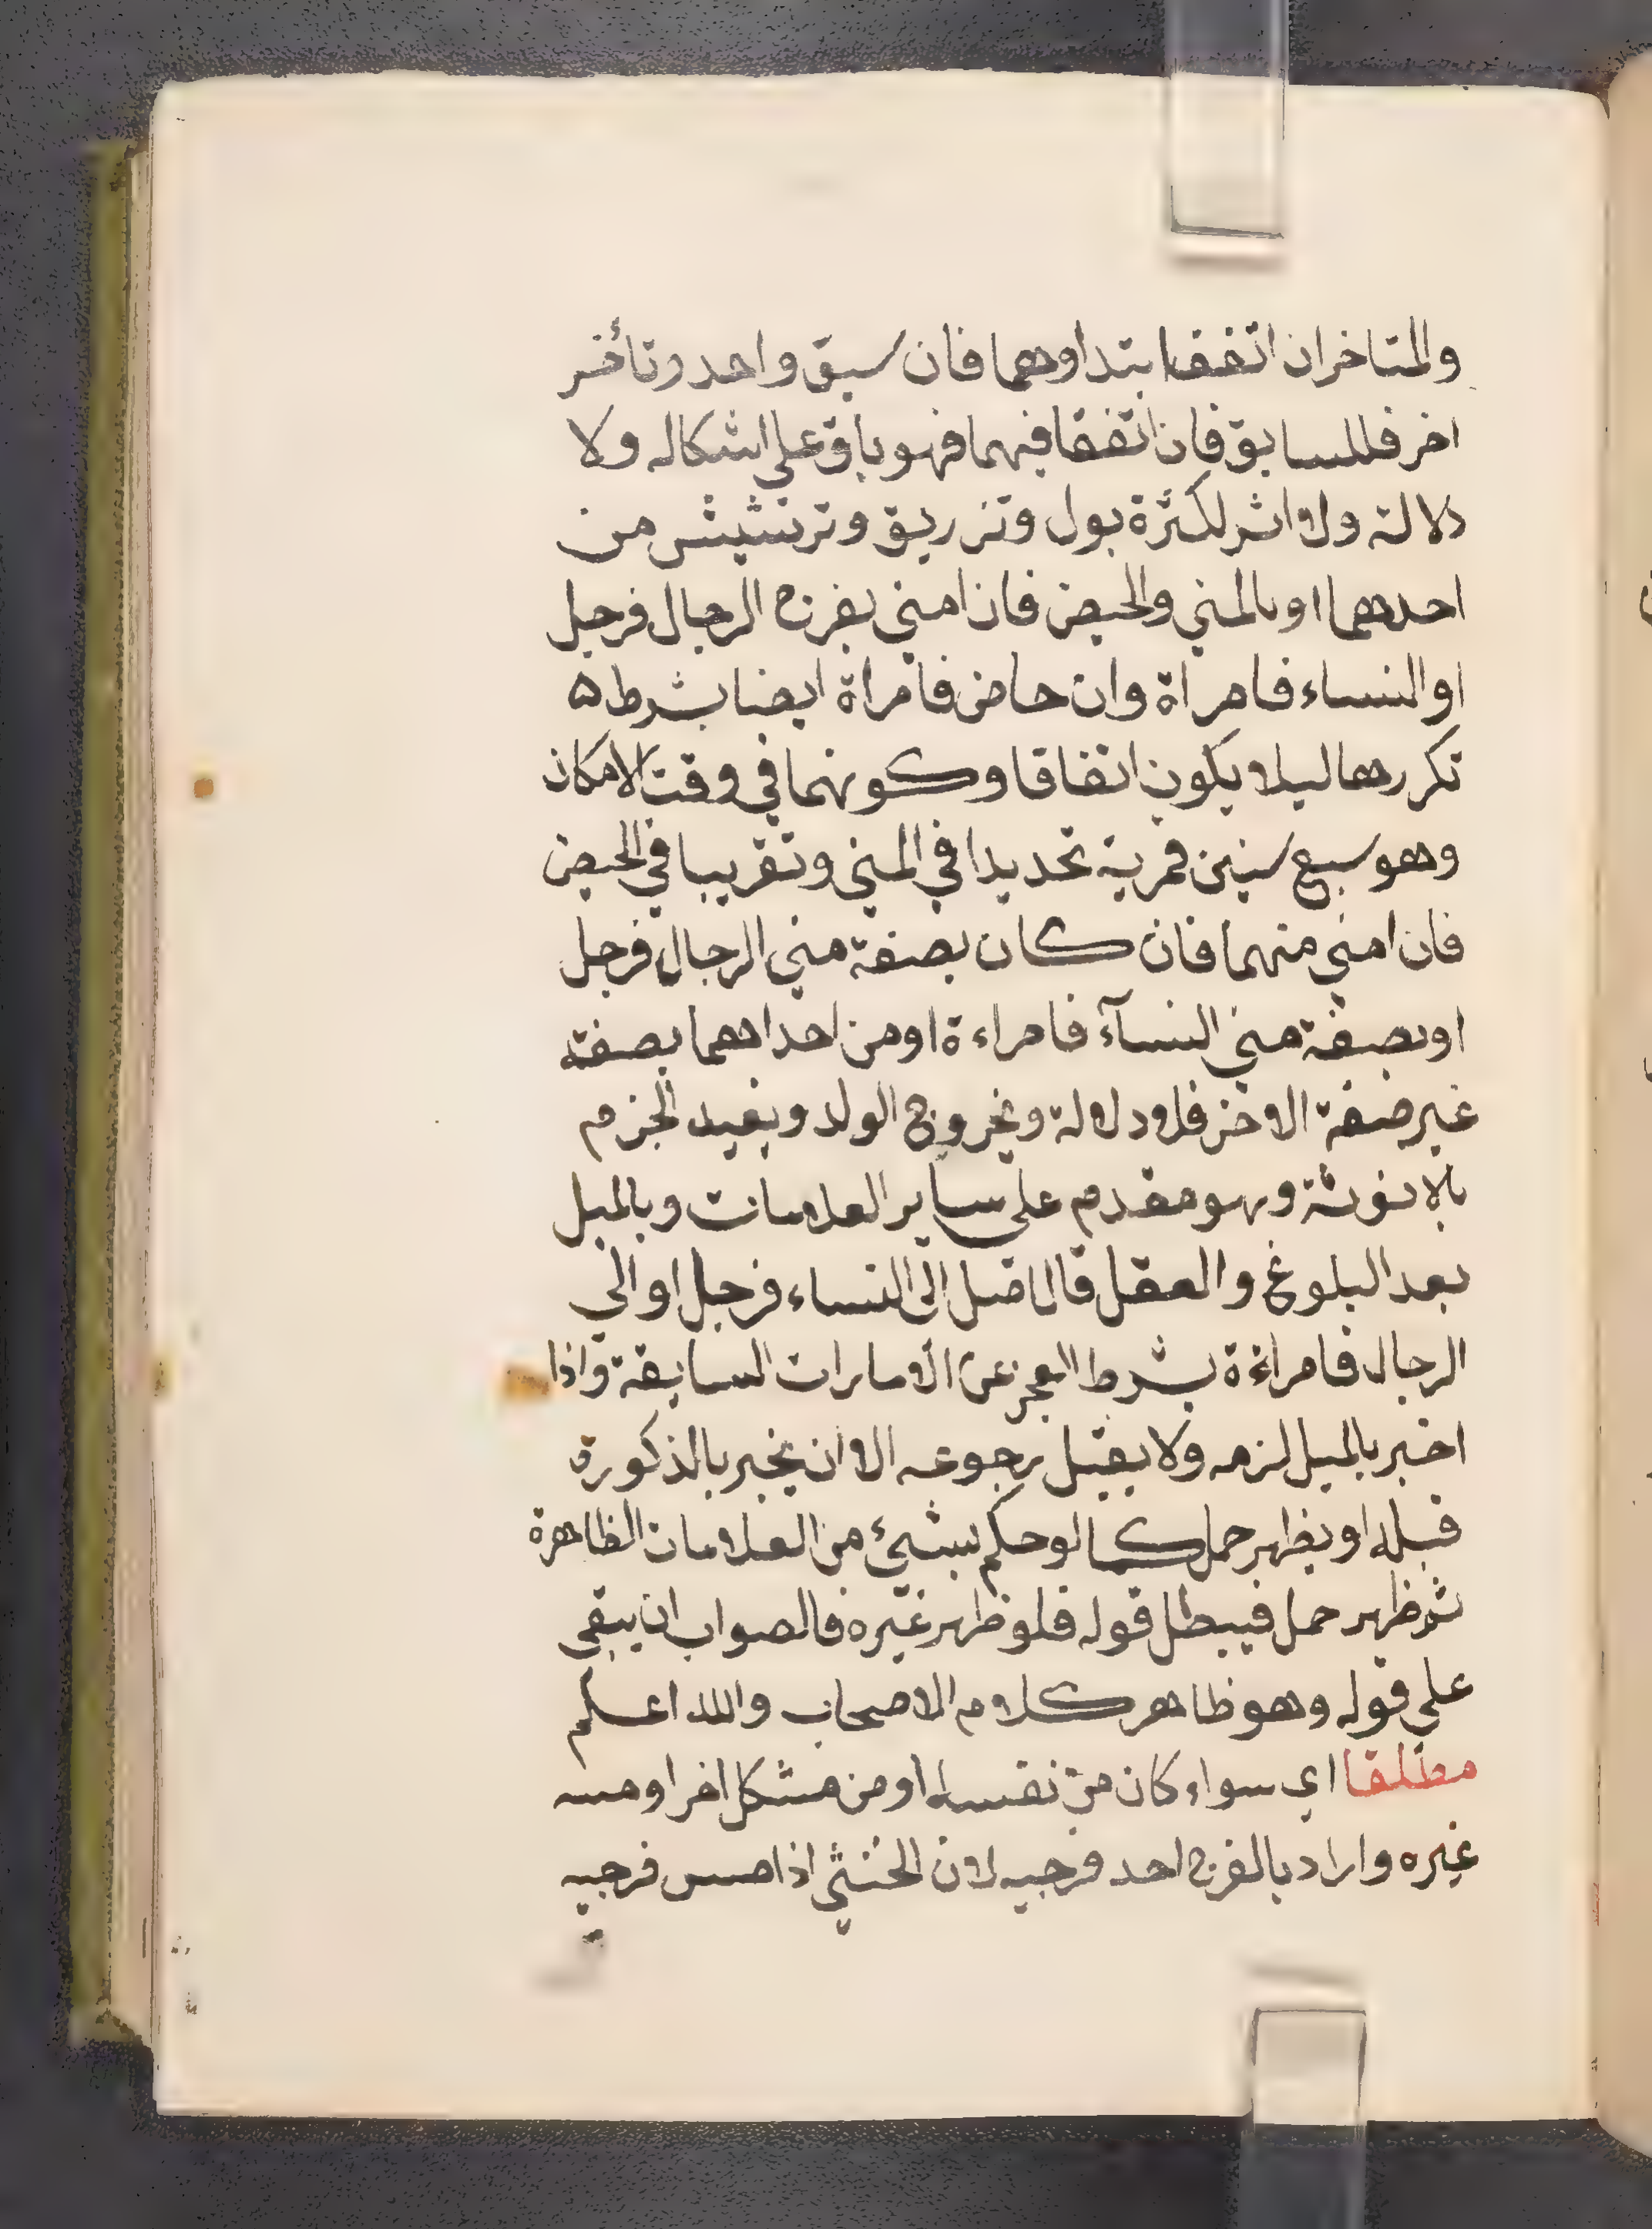 والمتاخران اتفقا ابتداوهما فان سبق واحد وتأخر
اخر فللسابق فان اتفقا فيهما فهو باق على اشكاله ولا
دلالة ولا اثر لكثرة بول وتزريق وترشيش من
احدهما او بالمني والحيض فان امنى بفرج الرجال فرجل
او النساء فامراة وان حاض فامراة ايضا بشرط
تكررهما ليلا يكون اتفاقا وكونهما في وقت الامكان
وهو سبع سنين قمرية تحديدا في المني وتقريبا في الحيض
فان امنى منهما فان كان بصفة مني الرجال فرجل
او بصفة مني النسآء فامراءة او من احداهما بصفة
غير صفة الاخر فلا دلالة وبخروج الولد ويفيد الجزم
بالانوثة وهو مقدم على ساير العلامات وبالميل
بعد البلوغ والعقل فالماصل الى النساء فرجل او الى
الرجال فامراءة بشرط العجز عن الامارات السابقة واذا
اخبر بالميل لزمه ولا يقبل رجوعه الا ان يخبر بالذكورة
قبله او يظهر حمل كما لو حكم بشيئ من العلامات الظاهرة
ثم ظهر حمل فيبطل قوله فلو ظهر غيره فالصواب ان يبقى
على قوله وهو ظاهر كلام الاصحاب والله اعلم
مطلقا اي سواء كان من نفسه او من مشكل اخر او مسه
غيره واراد بالفرج احد فرجيه لان الخنثى اذا مس فرجيه